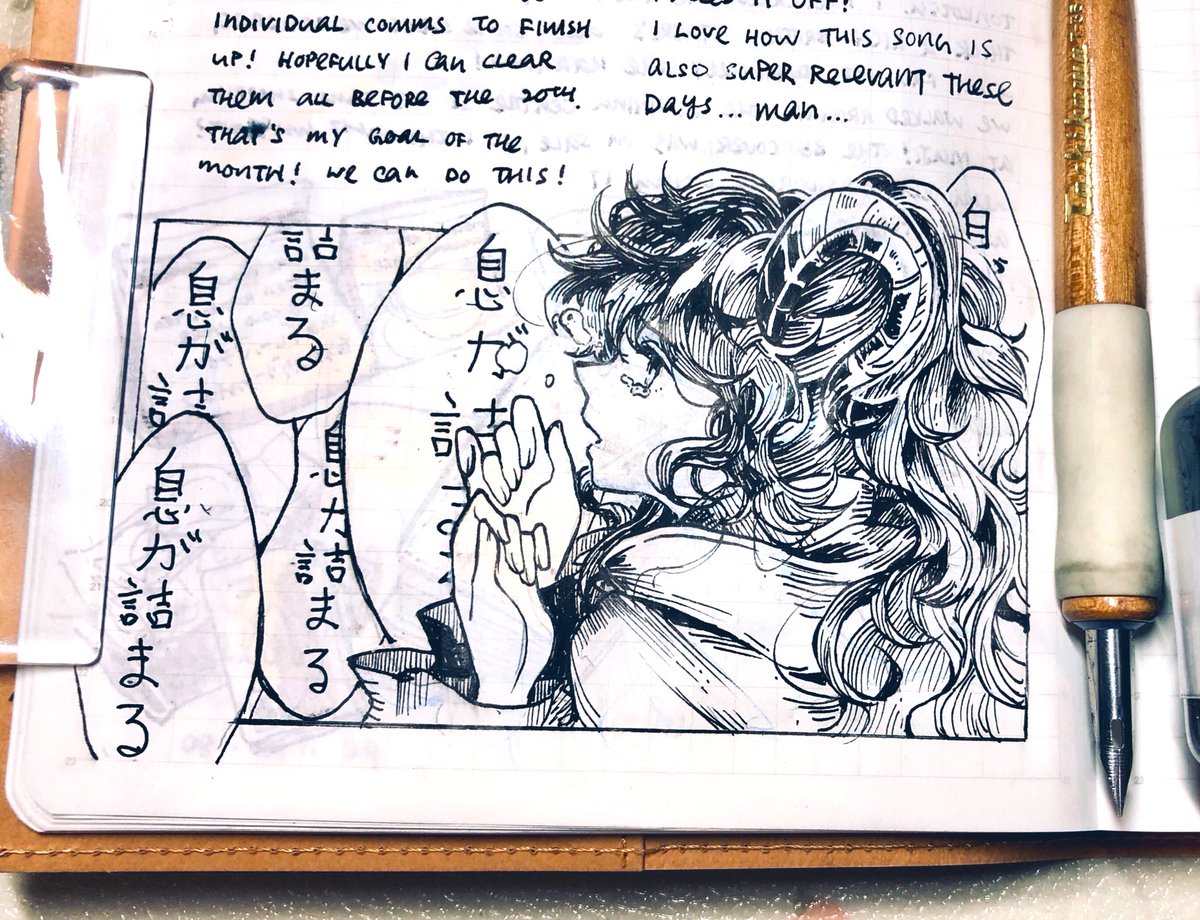 INDIVIDUAL COMMS TO FINISH
UP! HOPEFULLY I CAN CLEAR
THEM ALL BEFORE THE 20TH.
THAT'S MY GOAL OF THE
MONTH! WE CAN DO THIS!
IT OFF!
I LOVE HOW THIS SONG IS
ALSO SUPER RELEVANT THESE
DAYS... MAN...
息が
息が詰
詰まる
息が詰まる
息が詰まる
Tachikawa